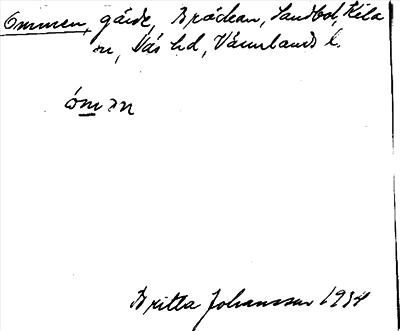 Ommen, gärde, Bräckan, Sandbol, Kila
sn, Näs hd, Värmlands l.
óm ən
Britta Johansson 1934